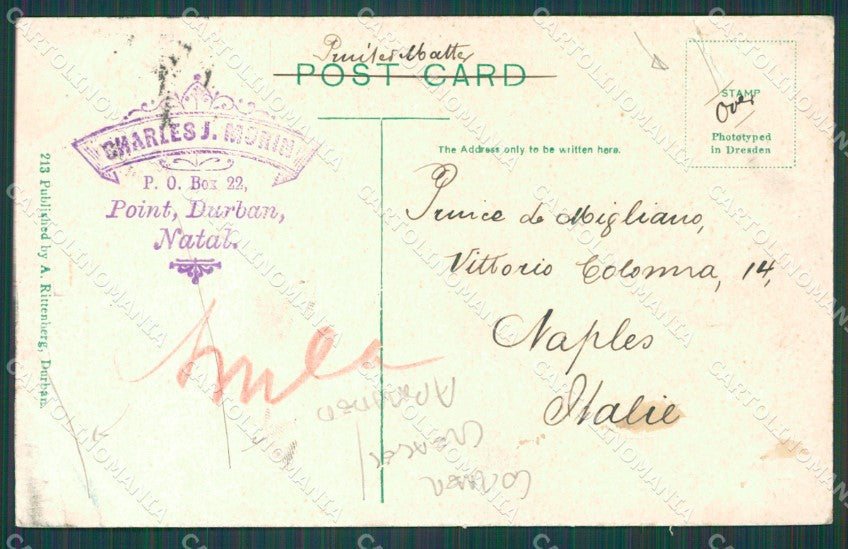 Printed Matter
POST CARD
CHARLES J. MORIN
P. O. Box 22,
Point, Durban,
Natal.
213 Published by A. Rittenberg, Durban.
STAMP
Over
Phototyped
in Dresden
The Address only to be written here.
Prince de Migliano,
Vittorio Colonna, 14,
Naples
Italie
CORNER
CREASES
CARTOLINOMANIA